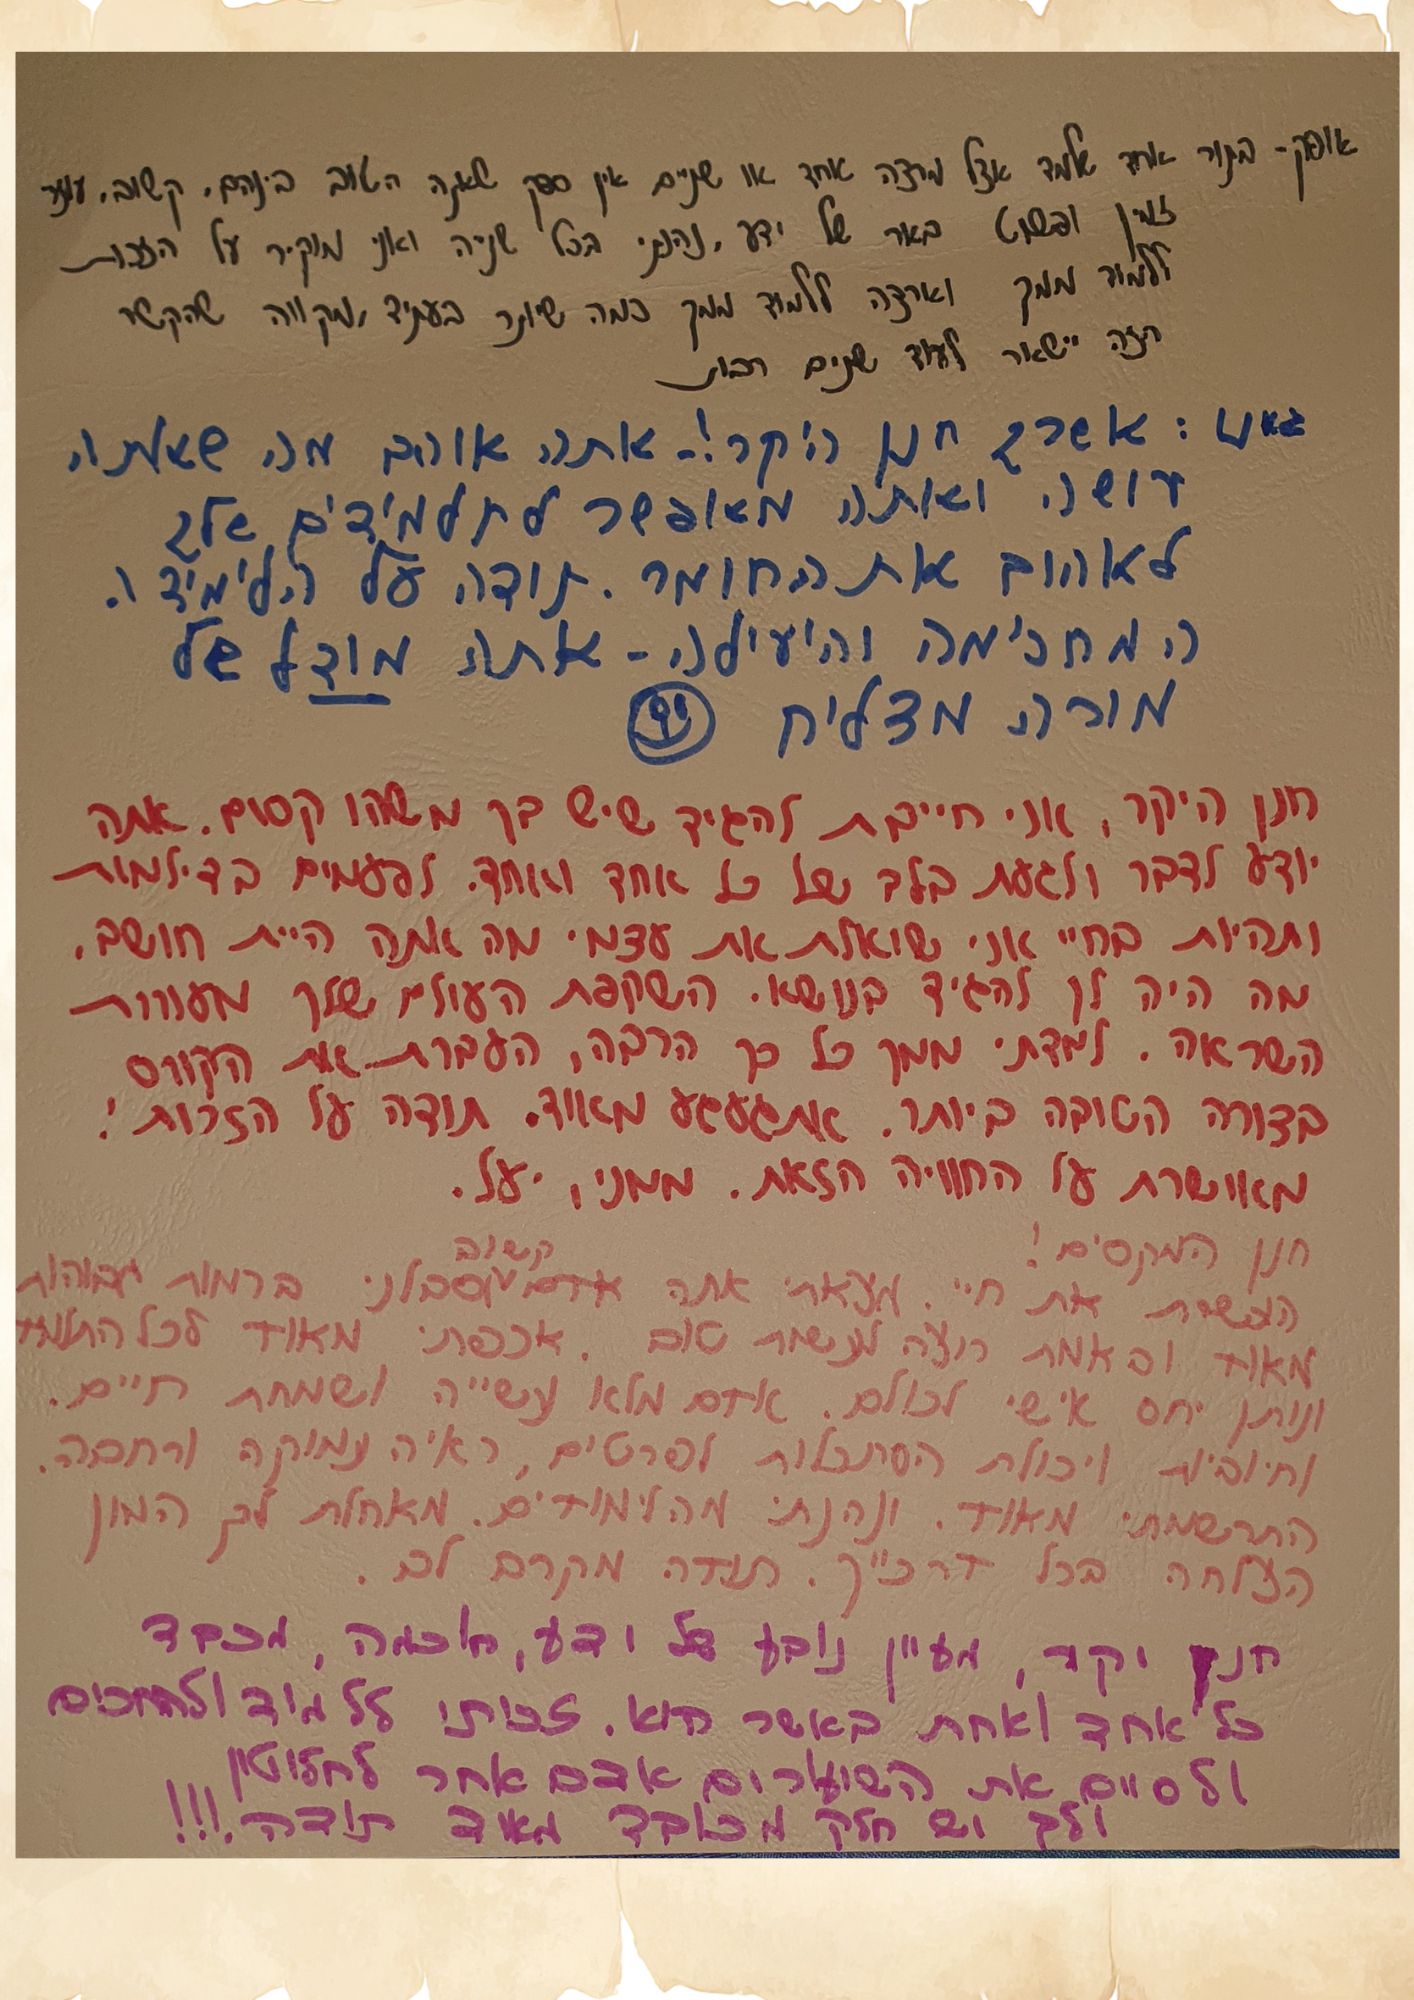 אופק- בתור אחד שלמד אצל מרצה אחד או שניים אין ספק שאתה הטוב ביניהם. קשוב, עוזר
זמין ופשוט באר של ידע, נהנתי בכל שנייה ואני מוקיר על הזכות
ללמוד ממך וארצה ללמוד ממך כמה שיותר בעתיד, מקווה שהקשר
הזה יישאר לעוד שנים רבות
: אשריך חנן היקר!- אתה אוהב מה שאתה
עושה ואתה מאפשר לתלמידים שלך
לאהוב את החומר. תודה על הלימידה
המחכימה והיעילה - אתה מודל של
מורה מצליח
חנן היקר, אני חייבת להגיד שיש בך משהו קסום. אתה
יודע לדבר ולגעת בלב של כל אחד ואחד. לפעמים בדילמות
ותהיות בחיי אני שואלת את עצמי מה אתה היית חושב,
מה היה לך להגיד בנושא. השקפת העולם שלך מעוררת
השראה. למדתי ממך כל כך הרבה, העברת את הקורס
בצורה הטובה ביותר. אתגעגע מאוד. תודה על הזכות!
מאושרת על החוויה הזאת. ממני, יעל.
חנן המקסים!
קשוב
העשרת את חיי. מצאתי אתה אדם סבלני ברמות גבוהות
מאוד ובאמת רוצה לעשות טוב. אכפתי מאוד לכל התלמיד
ונותן יחס אישי לכולם. אדם מלא עשייה ושמחת חיים.
וחיוביות ויכולת הסתכלות לפרטים, ראיה עמוקה ורחבה.
התרשמתי מאוד. ונהנתי מהלימודים. מאחלת לך המון
הצלחה בכל דרכייך. תודה מקרם לב.
חנן יקר, מעיין נובע של ידע, חוכמה, מכבד
כל אחד ואחת באשר הוא. זכותי ללמוד ולהחכים
ולסיים את השיעורים אדם אחר לחלוטין
ולך יש חלק מכובד מאד תודה.!!!